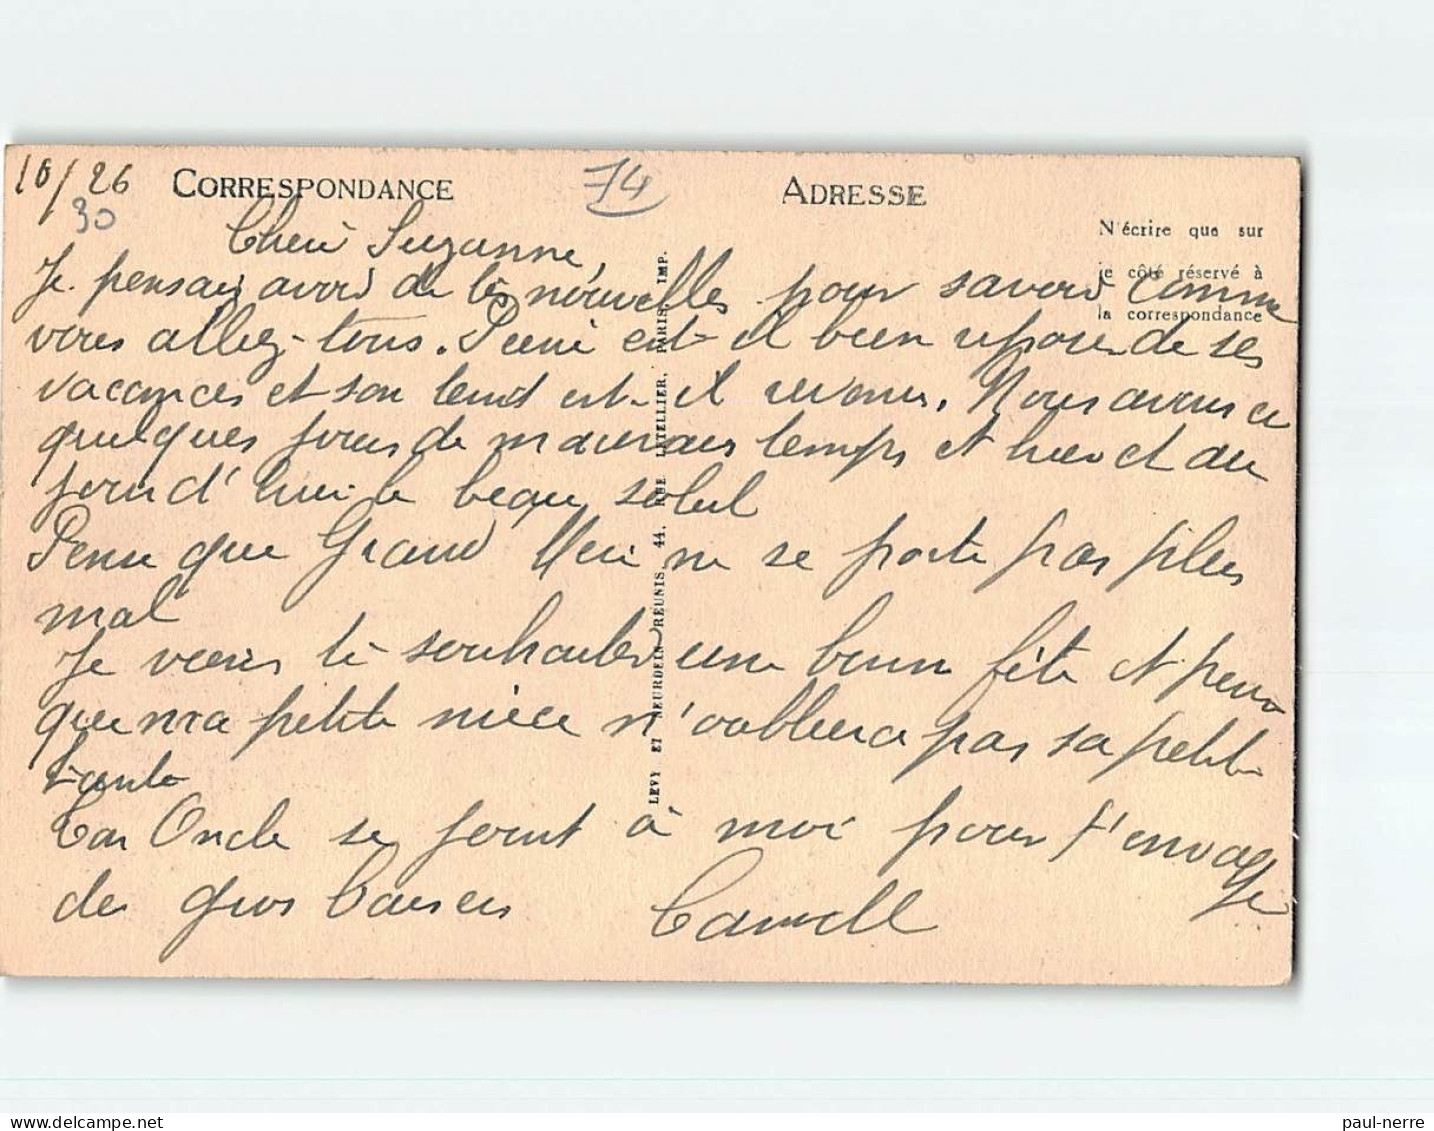 10/26
30
CORRESPONDANCE
74
ADRESSE
N'écrire que sur
le côté réservé à
la correspondance
Cheri Suzanne,
Je pensais avoir de tes nouvelles pour savoir comme
vous allez-tous. est-il bien reposer de ses
vacances et son est-il revenu. Nous avons eu
quelques jours de mauvais temps et hier et au
jourd'hui le beau soleil
Pense que Grand Meri ne se porte pas plus
mal
Je viens te souhaiter une bonne fête et pense
que ma petite niece n'oubliera pas sa petite
tante
Ton Oncle se joint à moi pour t'envoyé
de gros baisers
LEVY ET NEURDEIN RÉUNIS, 44, RUE LETELLIER, PARIS, IMP.
paul-nerre